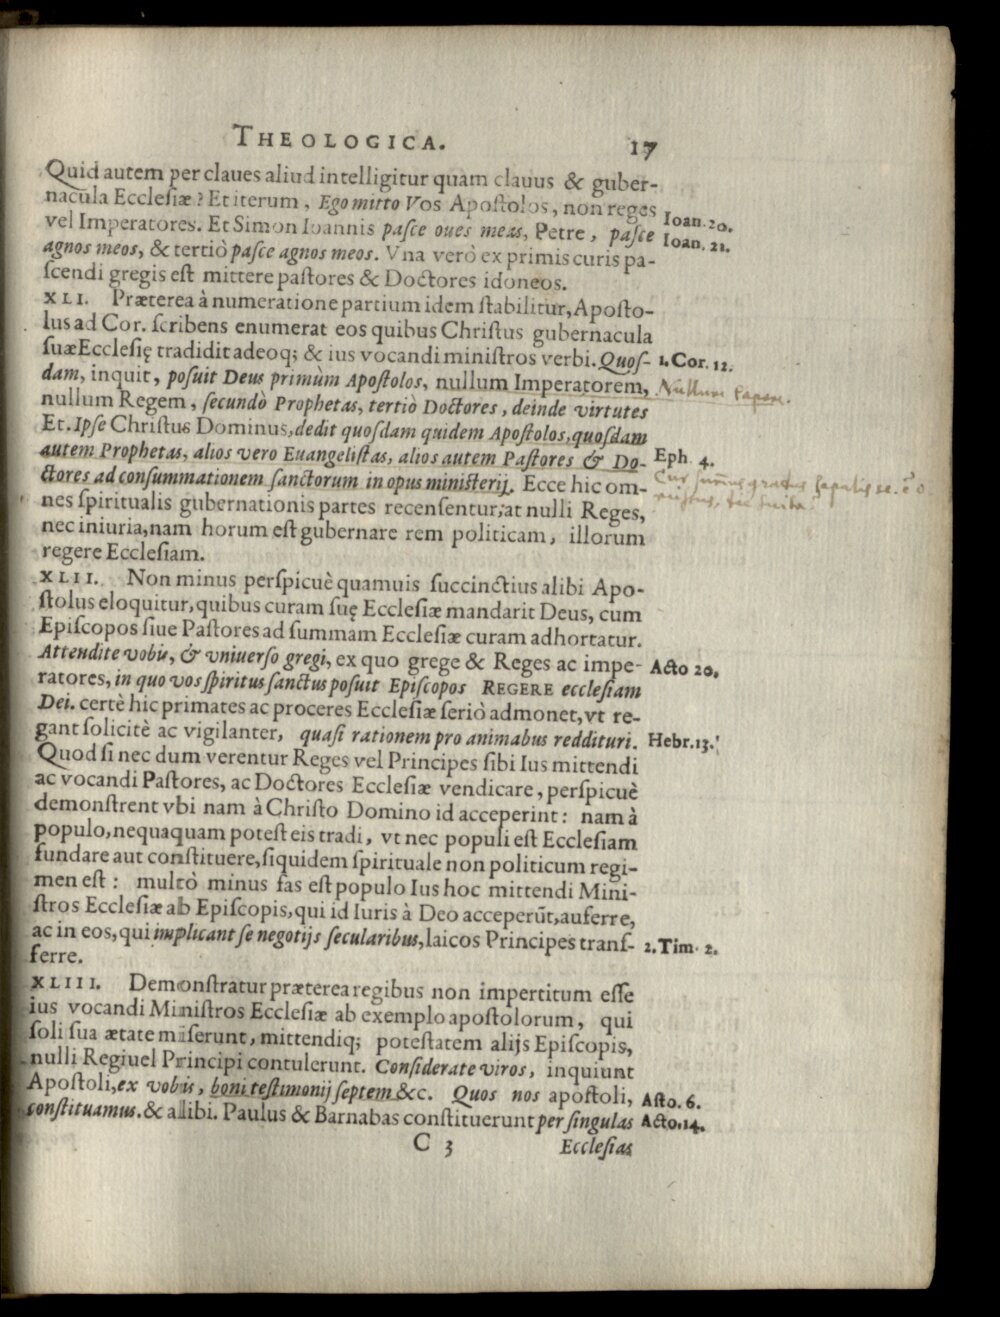 THEOLOGICA. 17
Quid autem per claues aliud intelligitur quam clauus & guber-
nacula Ecclesiæ? Et iterum, Ego mitto Vos Apostolos, non reges
Ioan. 20.
vel Imperatores. Et Simon Ioannis pasce oues meas, Petre, pasce
Ioan. 21.
agnos meos, & tertiò pasce agnos meos. Vna verò ex primis curis pa-
scendi gregis est mittere pastores & Doctores idoneos.
XLI. Præterea à numeratione partium idem stabilitur, Aposto-
lus ad Cor. scribens enumerat eos quibus Christus gubernacula
suæ Ecclesię tradidit adeoq; & ius vocandi ministros verbi. Quos-
1. Cor. 12.
dam, inquit, posuit Deus primùm Apostolos, nullum Imperatorem,
Nullum papam.
nullum Regem, secundò Prophetas, tertiò Doctores, deinde virtutes
Et. Ipse Christus Dominus, dedit quosdam quidem Apostolos, quosdam
autem Prophetas, alios vero Euangelistas, alios autem Pastores & Do-
Eph. 4.
ctores ad consummationem sanctorum in opus ministerij. Ecce hic om-
nes spiritualis gubernationis partes recensentur, at nulli Reges,
nec iniuria, nam horum est gubernare rem politicam, illorum
regere Ecclesiam.
XLII. Non minus perspicuè quamuis succinctius alibi Apo-
stolus eloquitur, quibus curam suę Ecclesiæ mandarit Deus, cum
Episcopos siue Pastores ad summam Ecclesiæ curam adhortatur.
Attendite vobis, & vniuerso gregi, ex quo grege & Reges ac impe-
Acto 20.
ratores, in quo vos spiritus sanctus posuit Episcopos REGERE ecclesiam
Dei. certè hic primates ac proceres Ecclesiæ seriò admonet, vt re-
gant solicitè ac vigilanter, quasi rationem pro animabus reddituri.
Hebr. 13.
Quod si nec dum verentur Reges vel Principes sibi Ius mittendi
ac vocandi Pastores, ac Doctores Ecclesiæ vendicare, perspicuè
demonstrent vbi nam à Christo Domino id acceperint: nam à
populo, nequaquam potest eis tradi, vt nec populi est Ecclesiam
fundare aut constituere, siquidem spirituale non politicum regi-
men est: multò minus fas est populo Ius hoc mittendi Mini-
stros Ecclesiæ ab Episcopis, qui id Iuris à Deo acceperūt, auferre,
ac in eos, qui implicant se negotijs secularibus, laicos Principes trans-
2. Tim. 2.
ferre.
XLIII. Demonstratur præterea regibus non impertitum esse
ius vocandi Ministros Ecclesiæ ab exemplo apostolorum, qui
soli sua ætate miserunt, mittendiq; potestatem alijs Episcopis,
nulli Regi uel Principi contulerunt. Considerate viros, inquiunt
Apostoli, ex vobis, boni testimonij septem &c. Quos nos apostoli,
Acto. 6.
constituamus. & alibi. Paulus & Barnabas constituerunt per singulas
Acto. 14.
C 3 Ecclesias